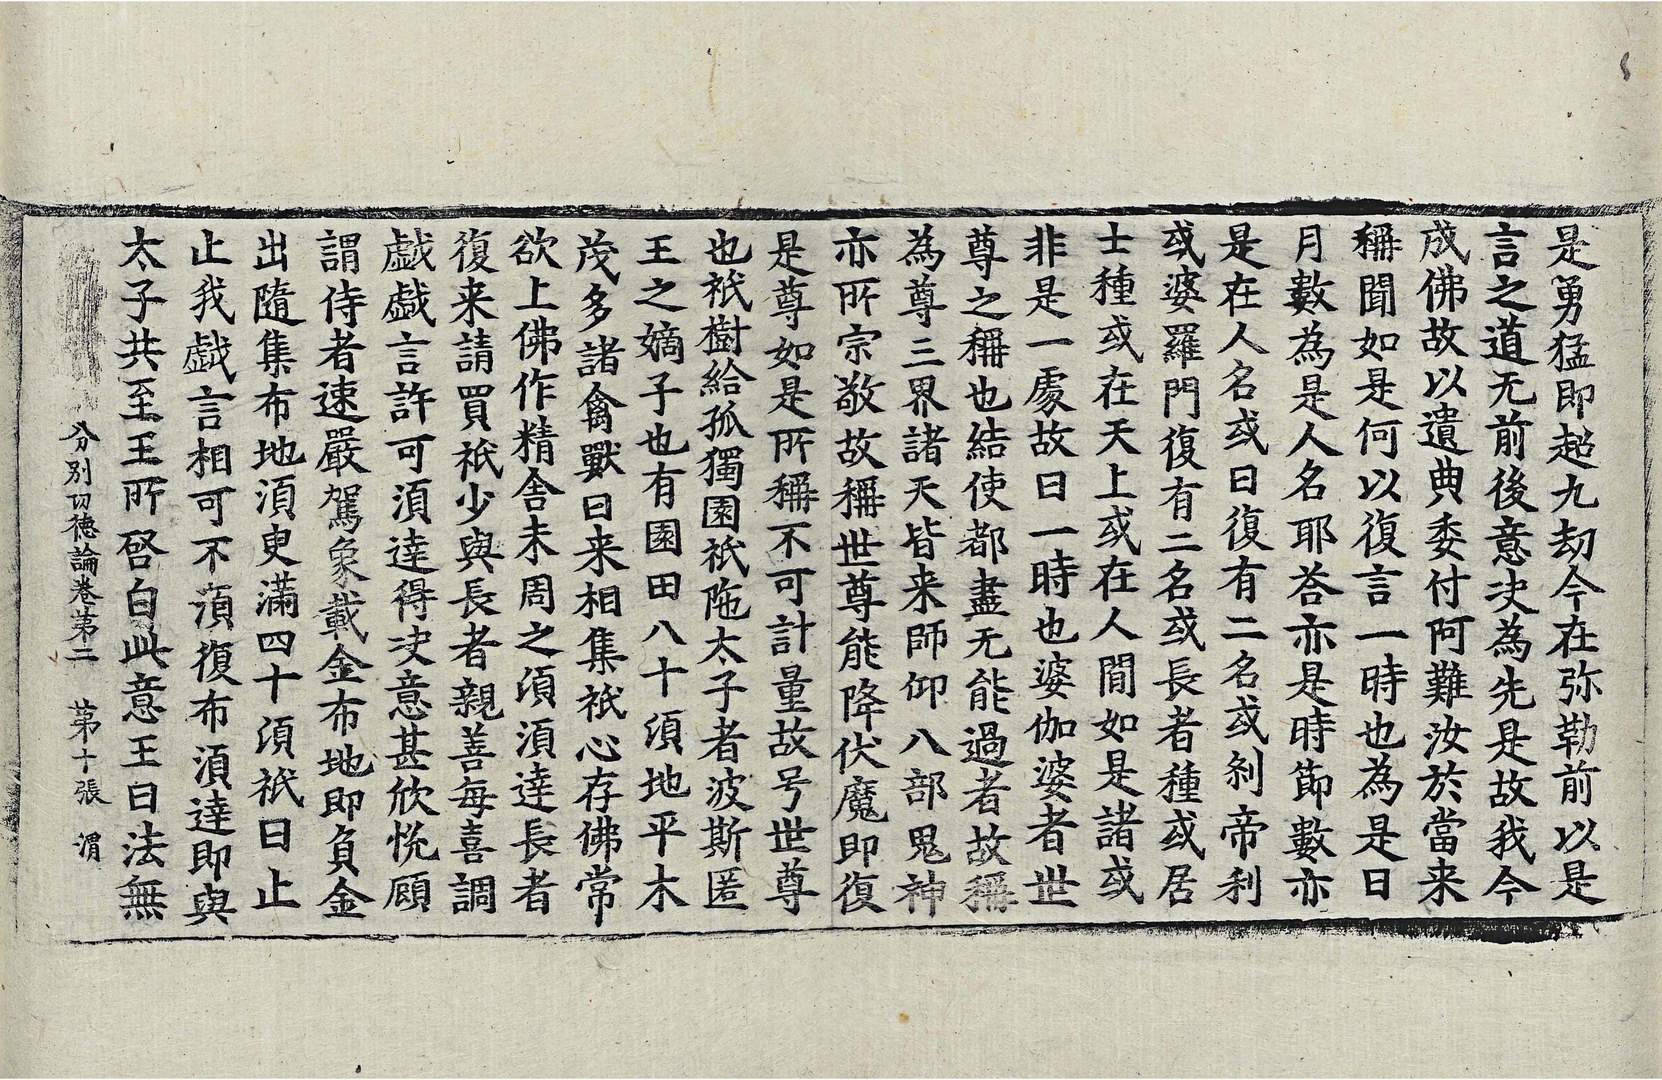 是勇猛即超九劫今在弥勒前以是
言之道无前後意决為先是故我今
成佛故以遺典委付阿難汝於當来
稱聞如是何以復言一時也為是日
月數為是人名耶荅亦是時節數亦
是在人名或曰復有二名或剎帝利
或婆羅門復有二名或長者種或居
士種或在天上或在人間如是諸或
非是一處故曰一時也婆伽婆者世
尊之稱也結使都盡无能過者故稱
為尊三界諸天皆来師仰八部鬼神
亦所宗敬故稱世尊能降伏魔即復
是尊如是所稱不可計量故号世尊
也祇樹給孤獨園祇陁太子者波斯匿
王之嫡子也有園田八十頃地平木
茂多諸禽獸日来相集祇心存佛常
欲上佛作精舍未周之須須達長者
復来請買祇少與長者親善每喜調
戱戱言許可須達得决意甚欣悅顧
謂侍者速嚴駕象載金布地即負金
出隨集布地須臾滿四十頃祇曰止
止我戱言相可不須復布須達即與
太子共至王所啓白此意王曰法無
分別功德論卷第二　第十張　渭